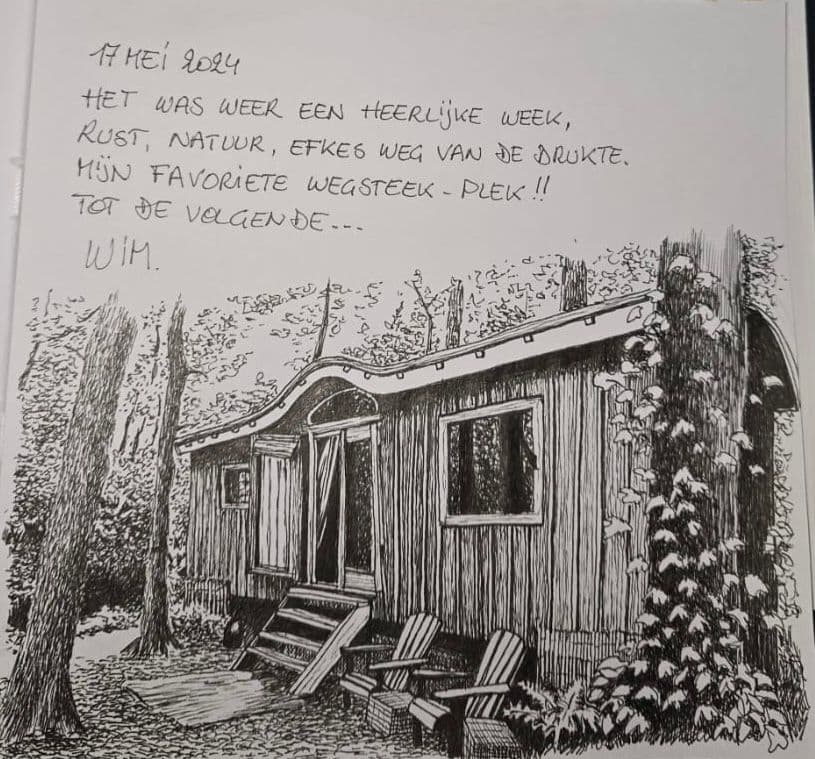 17 MEI 2024
HET WAS WEER EEN HEERLIJKE WEEK,
RUST, NATUUR, EFKES WEG VAN DE DRUKTE.
MIJN FAVORIETE WEGSTEEK-PLEK!!
TOT DE VOLGENDE...
WIM.